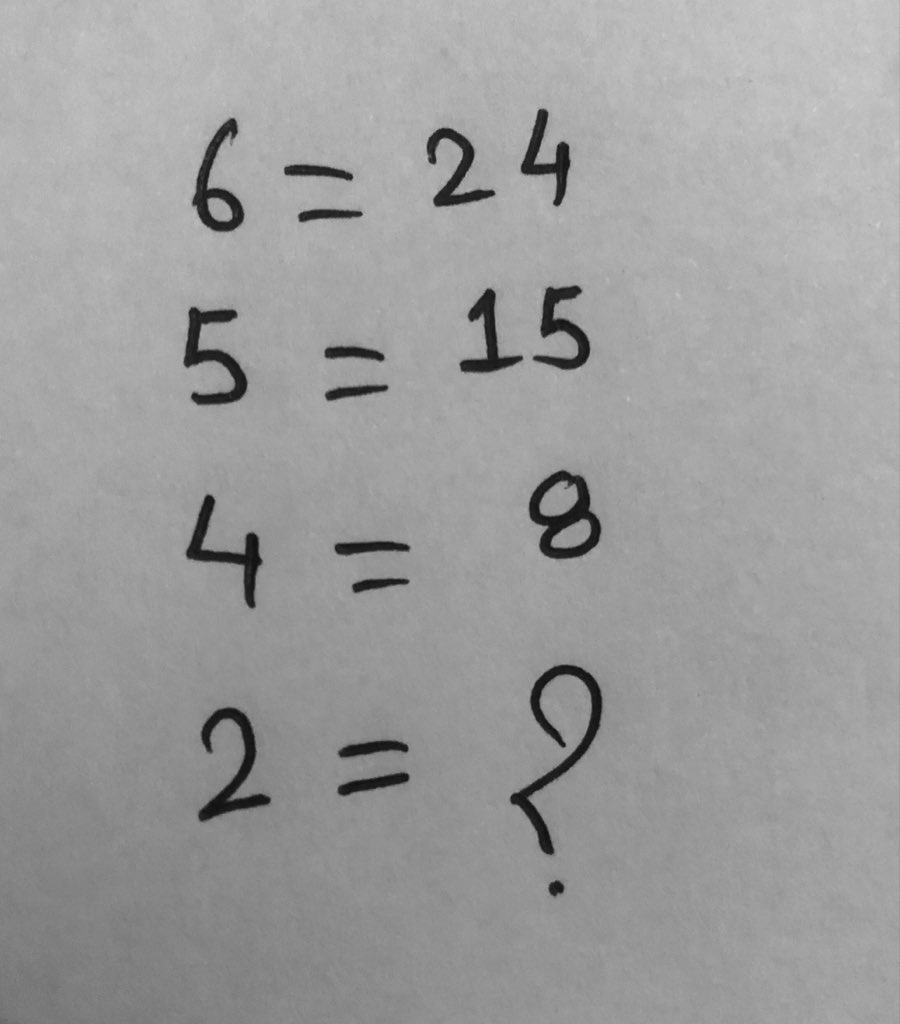 6 = 24
5 = 15
4 = 8
2 = ?